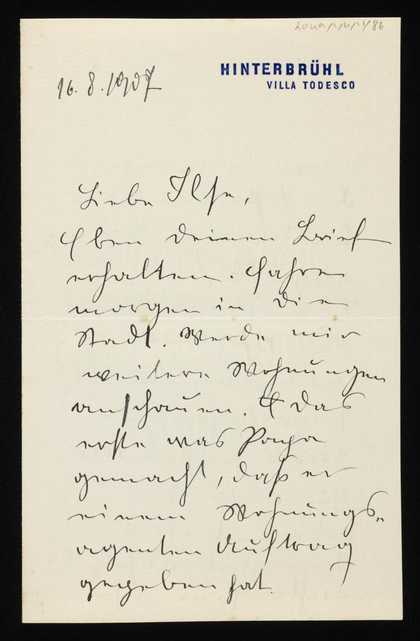 HINTERBRÜHL
VILLA TODESCO
16.8.1907
Liebe Ilse,
Eben deinen Brief
erhalten. Fahre
morgen in die
Stadt. Werde mir
weitere Wohnungen
anschauen. das
erste was Papa
gemacht, daß er
einem Wohnungs-
agenten Auftrag
gegeben hat.